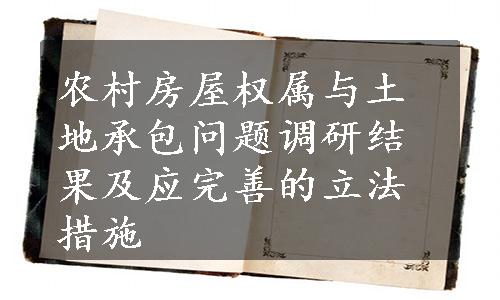 农村房屋权属与土
地承包问题调研结
果及应完善的立法
措施